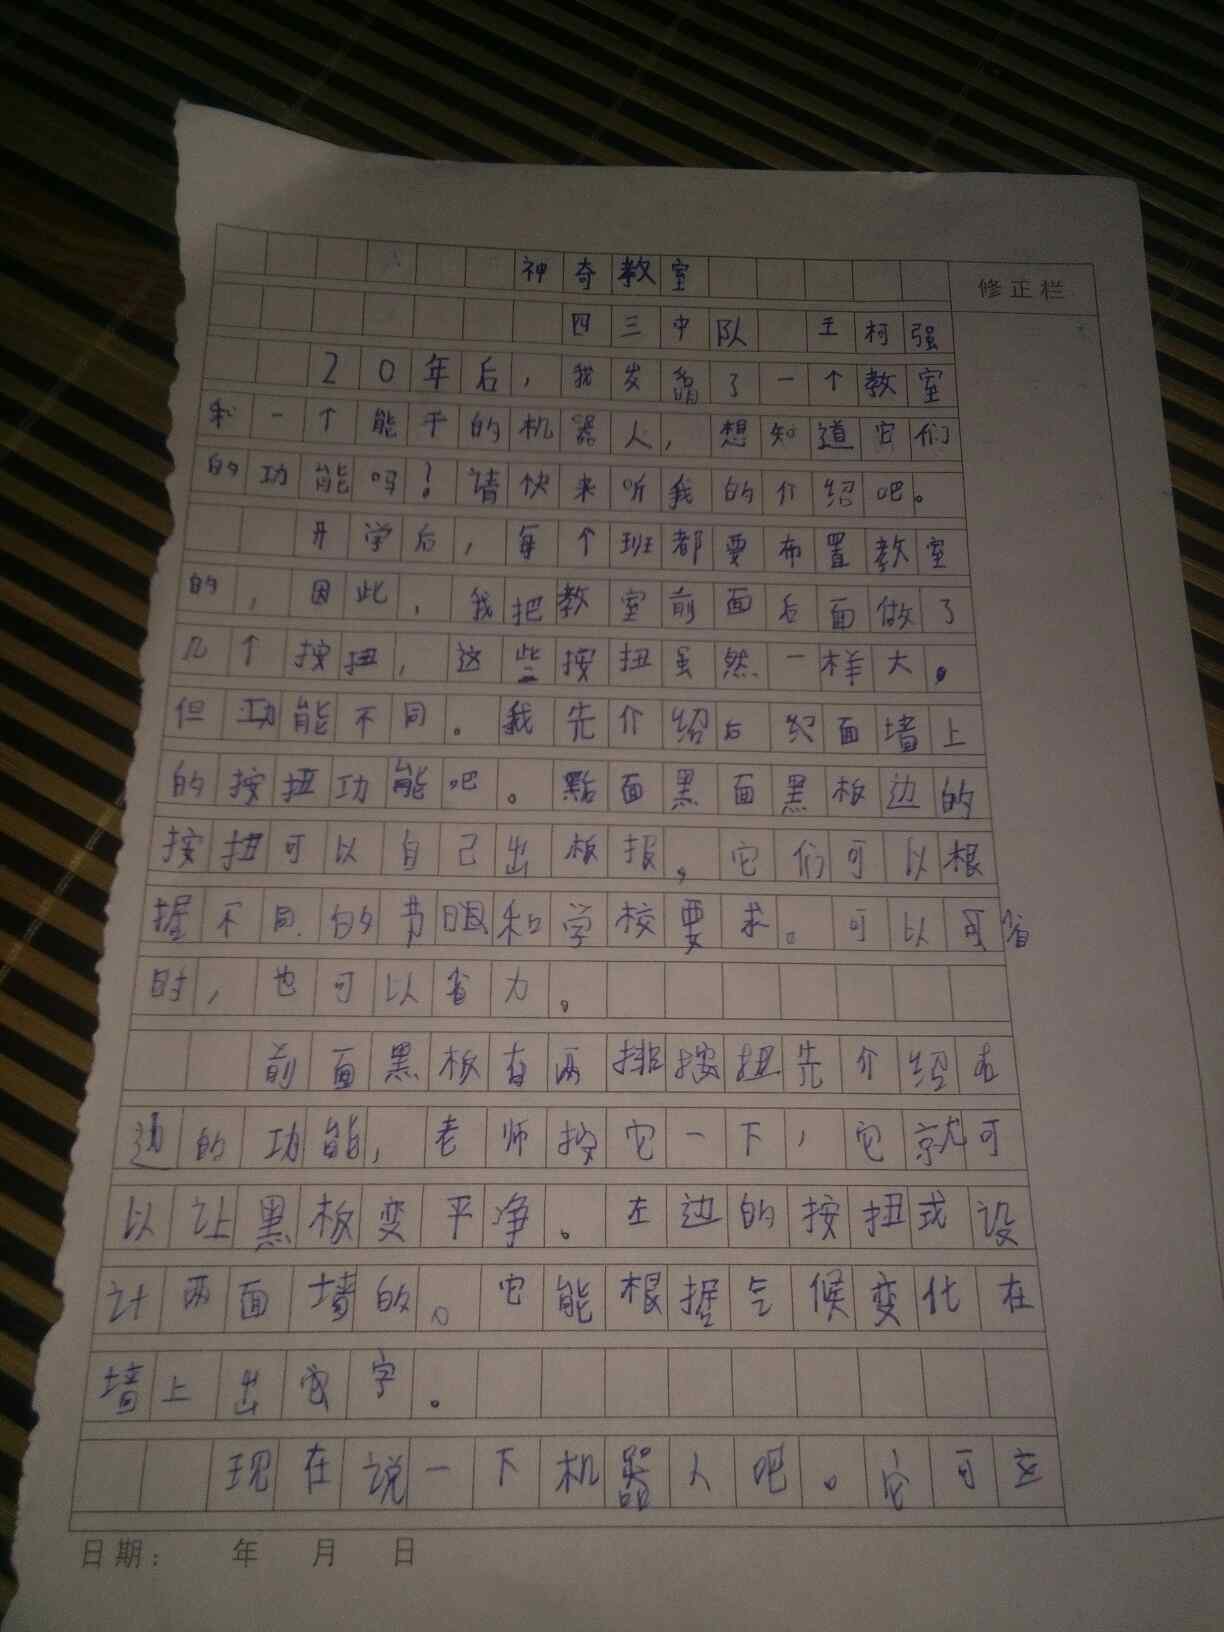 神奇教室
修正栏
四三中队 王柯强
20年后，我发明了一个教室
和一个能干的机器人，想知道它们
的功能吗？请快来听我的介绍吧。
开学后，每个班都要布置教室
的，因此，我把教室前面后面做了
几个按扭，这些按扭虽然一样大。
但功能不同。我先介绍后面墙上
的按扭功能吧。面黑面黑板边的
按扭可以自己出板报，它们可以根
握不同的节和学校要求。可以可省
时，也可以省力。
前面黑板有两排按扭先介绍右
边的功能，老师按它一下，它就可
以让黑板变平净。左边的按扭或设
计两面墙的。它能根据气候变化在
墙上出字。
现在说一下机器人吧。它可
日期： 年 月 日